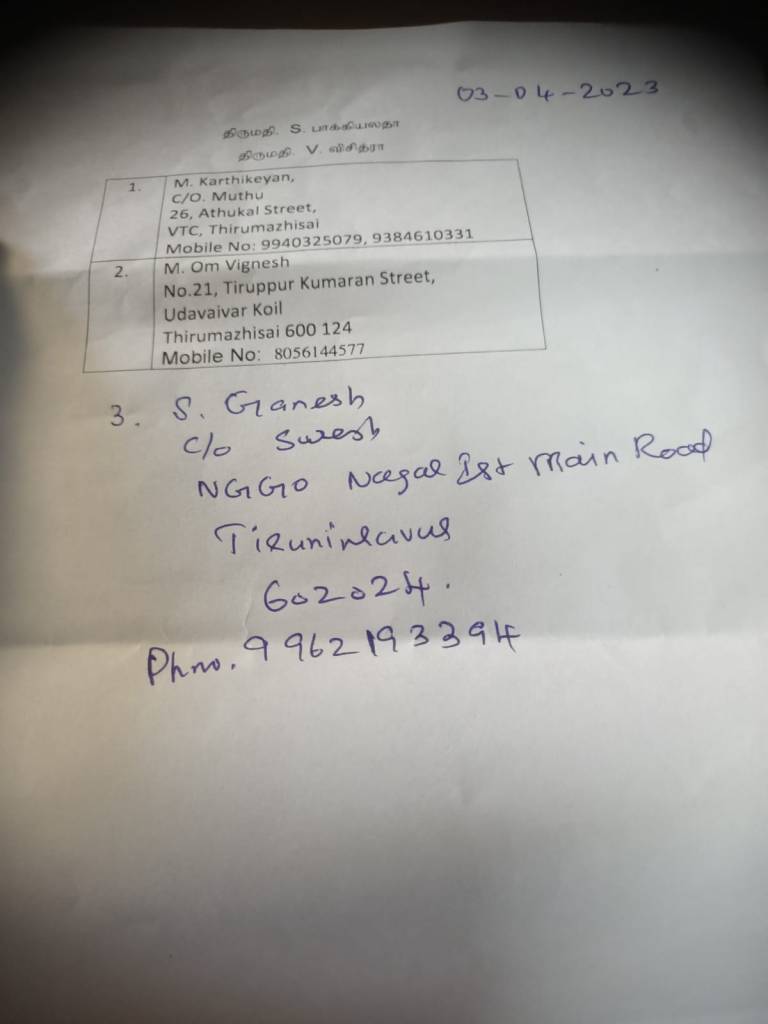 03-04-2023
திருமதி. S. பாக்கியலதா
திருமதி. V. விசித்ரா
1. M. Karthikeyan,
C/O. Muthu
26, Athukal Street,
VTC, Thirumazhisai
Mobile No: 9940325079, 9384610331
2. M. Om Vignesh
No.21, Tiruppur Kumaran Street,
Udavaivar Koil
Thirumazhisai 600 124
Mobile No: 8056144577
3. S. Ganesh
C/o Suresh
NGGO Nagar Ist Main Road
602024.
Ph no. 9962193394